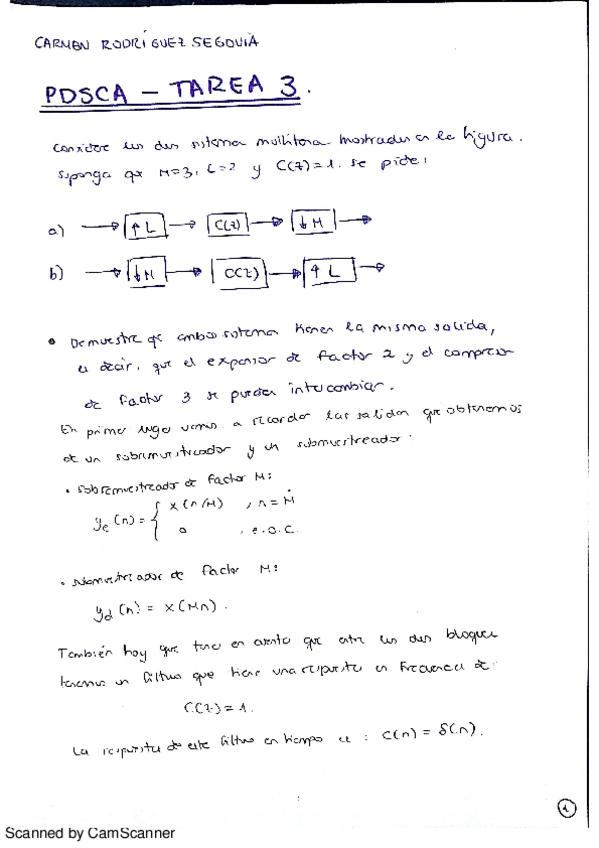 CARMEN RODRÍGUEZ SEGOVIA
PDSCA – TAREA 3.
Considere los dos sistema multitasa mostrados en la figura.
Suponga que M=3, L=2 y C(z)=1. se pide:
a) ↑L C(z) ↓M
b) ↓M C(z) ↑L
• Demuestre que ambos sistema tienen la misma salida,
es decir, que el expansor de factor 2 y el compresor
de factor 3 se pueden intercambiar.
En primer lugar vamos a recordar las salidas que obtenemos
de un sobremuestreador y un submuestreador:
• Sobremuestreador de factor M:
ye(n) = { x(n/M) , n = Ṁ
0 , e.o.c.
• submuestreador de factor M:
yd(n) = x(Mn).
También hay que tener en cuenta que entre los dos bloques
tenemos un filtro que tiene una respuesta en frecuencia de:
C(z) = 1.
La respuesta de este filtro en tiempo es: c(n) = δ(n).
1
Scanned by CamScanner